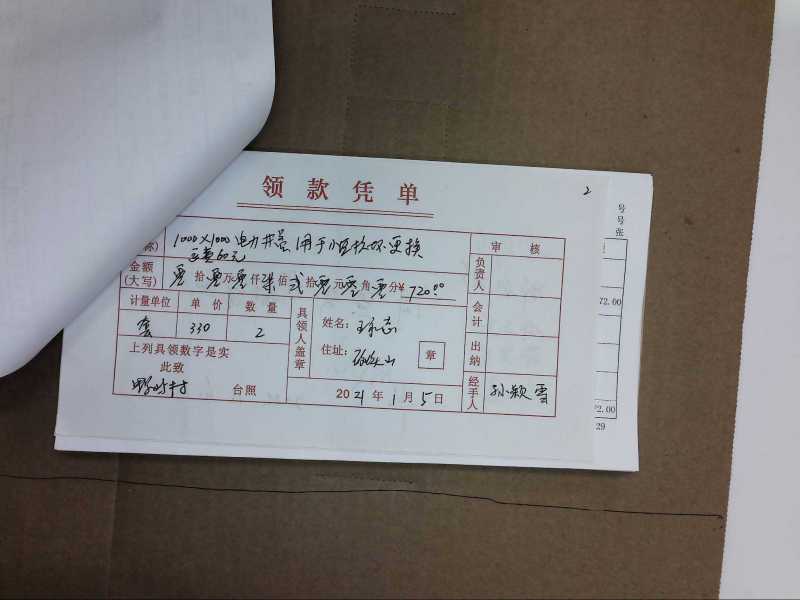 领款凭单
2
号
号
张
称)
1000×1000电力井盖用于小区损坏更换
运费60元
审核
金额
(大写)
零拾零万零仟柒佰贰拾零元零角零分¥720.00
负责人
计量单位 单价 数量
套 330 2
具领人盖章
姓名:
住址:
章
会计
出纳
上列具领数字是实
此致
台照
2021年1月5日
经手人
孙颖雪
72.00
72.00
29